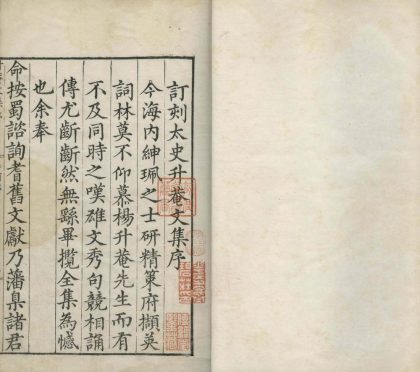 訂刻太史升菴文集序
今海内紳珮之士研精策府擷英
詞林莫不仰慕楊升菴先生而有
不及同時之嘆雄文秀句競相誦
傳尤齗齗然無繇畢攬全集為憾
也余奉
命按蜀諮詢耆舊文獻乃藩臬諸君